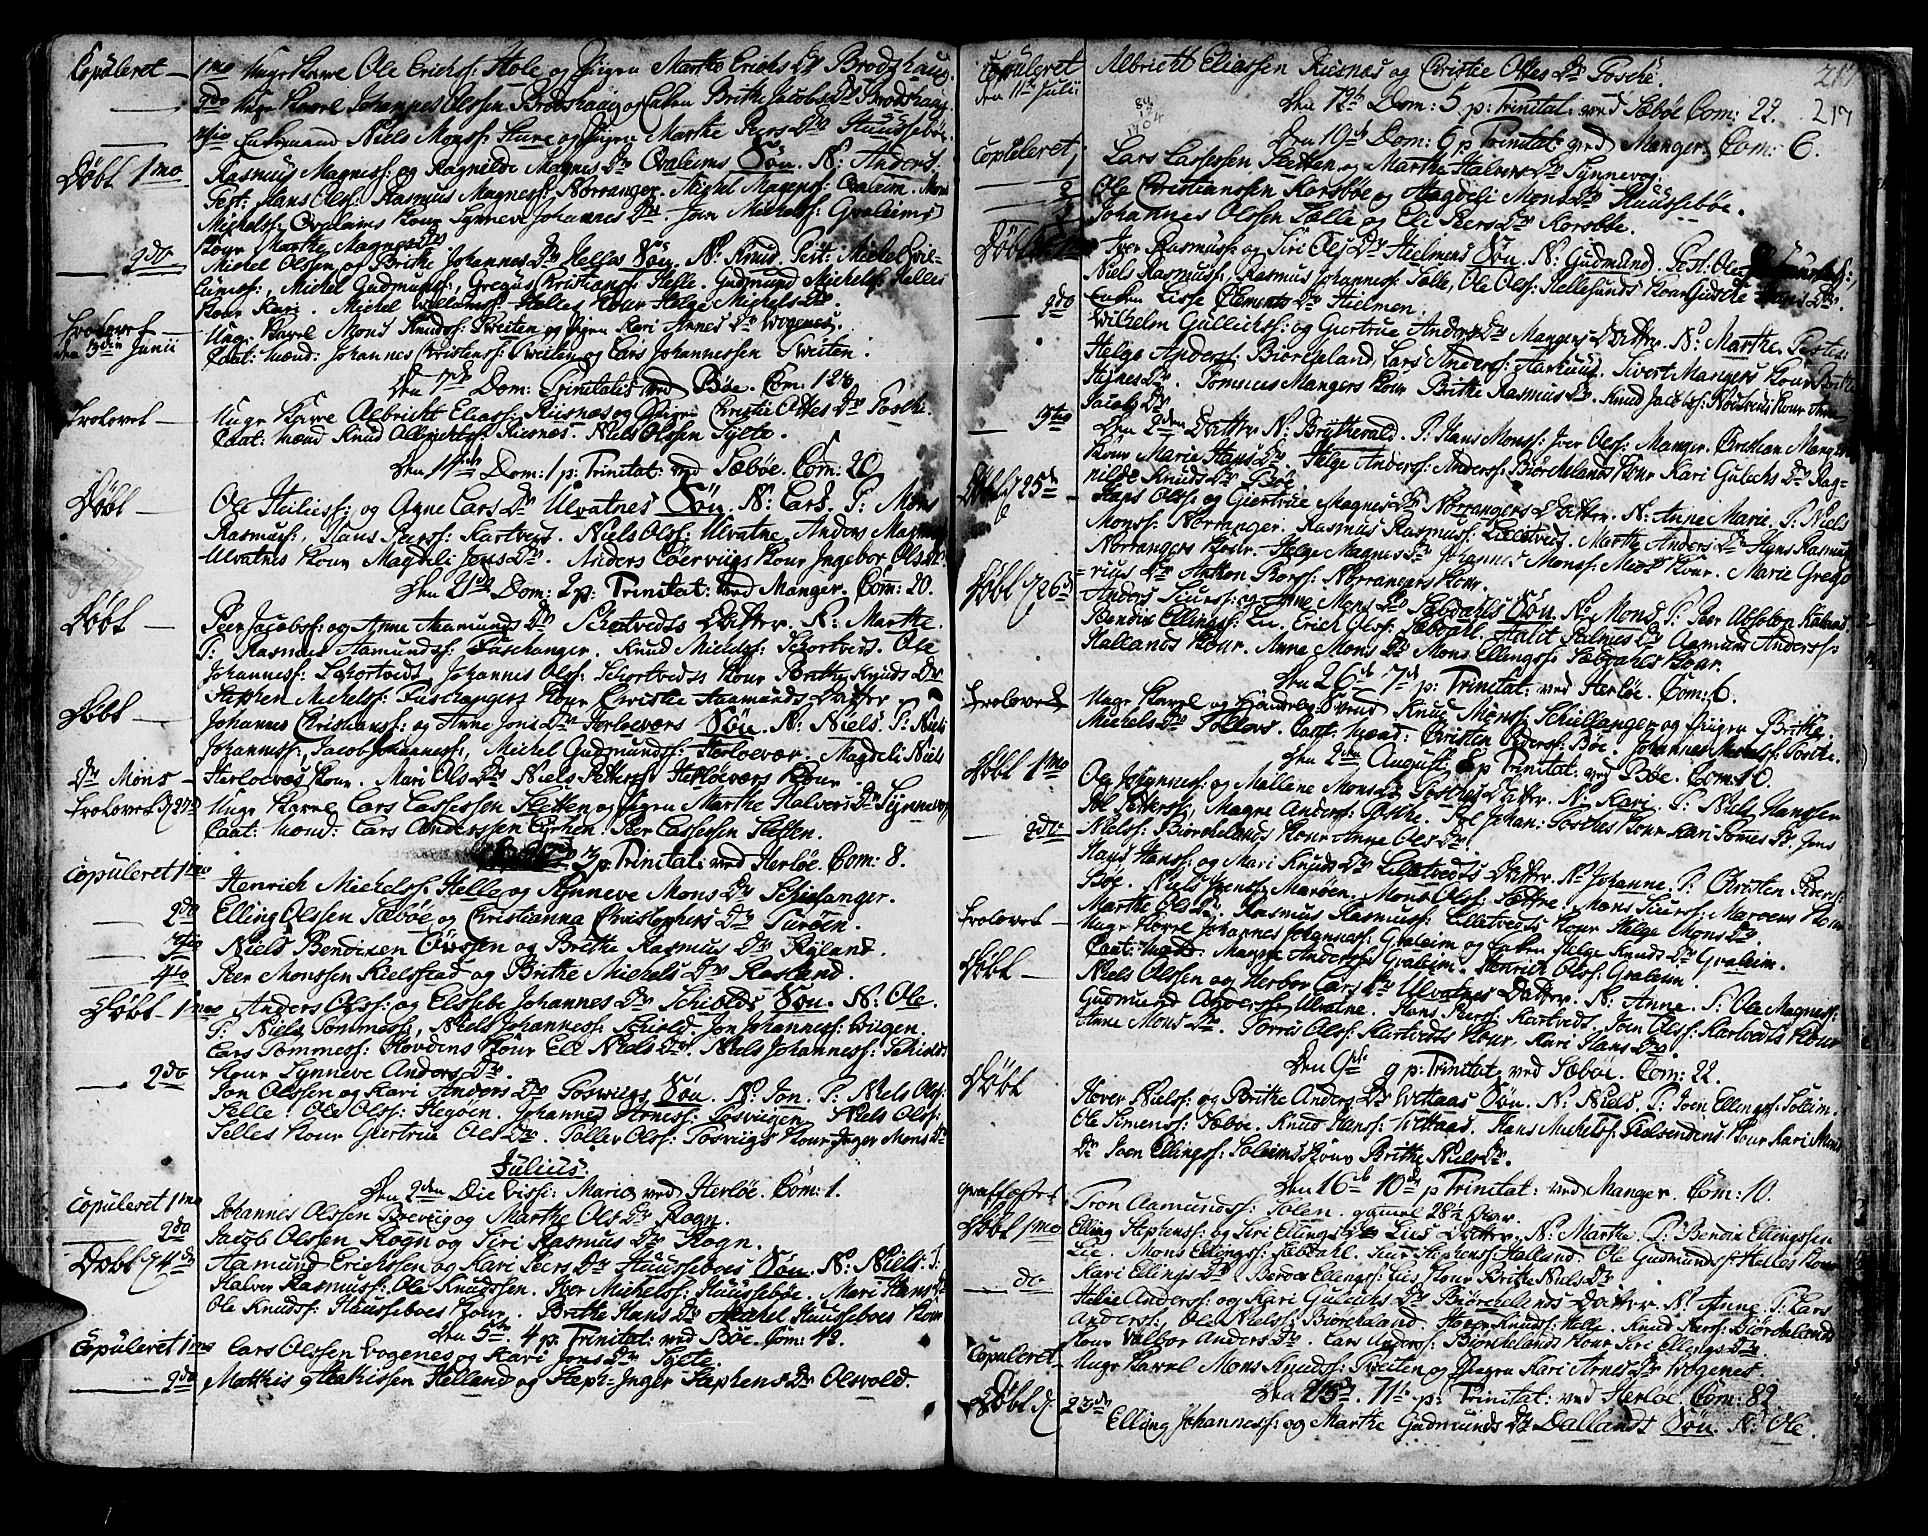 Copuleret — 1mo Unge Karl Ole Erichss: Hole og Pigen Marthe Erichs Dr Brodshaug.
— 2do Unge Karl Johannes Olssen Brodshaug og Enken Brithe Jacobs Dr Brodshaug.
— 3tio Enkemand Niels Monss: Hune og Pigen Marthe Peers Dr Huussebøe.
Døbt 1mo Rasmus Magness: og Ragnilde Magnes Dr Qvaleims Søn. N: Anders.
Test: Hans Olss: Rasmus Magness: Norranger. Michel Magenss: Qvaleim. Mari
Michelss: Qvaleims Kour Synneve Johannes Dr. Joen Michelss: Gvaleims
Kour Marthe Magnes Dr
— 2do Michel Olssen og Brithe Johannes Dr Helles Søn. N: Knud. Test: Michel Vil-
lumss:, Michel Gudmunss:, Gregus Cristianss: Helle. Gudmund Michelss: Helles
Kour Kari. Michel Willumss: Helles Kour Helge Michels Dr.
Trolovet — Unge Karl Mons Knudss: Tveiten og Pigen Kari Arnes Dr Vogenes.
den 3den Junii Caut: mænd: Johannes Christenss: Tveiten og Lars Johannessen Tveiten.
Den 7de Dom: Trinitatis ved Bøe. Com: 123
Trolovet — Unge Karl Albricht Eliass: Risnæs og Pigen Christie Ottes Dr Toske.
Caut: mænd Knud Albrichtss: Risnæs. Niels Olssen Sylte.
Den 14de Dom: 1 p: Trinitat: ved Sæbøe. Com: 20
Døbt — Ole Heliess: og Agne Lars Dr Ulvatnes Søn. N: Lars. T: Mons
Rasmuss:, Hans Perss: Kartveit. Niels Olss: Ulvatne, Anders Magness:
Ulvatnes Kour Magdeli Jens Dr. Anders Cøervigs Kour Ingebor Ols Dr.
Den 21de Dom: 2 p: Trinitat: ved Manger. Com: 20.
Døbt — Peer Jacobss: og Anne Aamunds Dr Schortvedts Datter. N: Marthe.
T: Rasmus Aamundss: Fuschanger. Knud Michelss: Schortvedt. Ole
Johanness: Schortvedt Johannes Olss: Schortvedts Kour Brithe Knuds Dr
Stephen Michelss: Fuschangers Kour Christie Aamunds Datter
Døbt — Johannes Christianss: og Anne Jons Dr Herloevers Søn. N: Niels. T: Niels
Johanness:, Jacob Johanness:, Michel Gudmundss: Herloevær. Magdeli Niels
Dr Mons — Herloevæs Kour. Mari Ols Dr Niels Pederss: Herløevers Kour
Trolovet d 27d Unge Karl Lars Lassessen Sletten og Pigen Marthe Halvers Dr Synnevog
Caut: mænd: Lars Anderssen Lyrhen. Peer Lassessen Sletten.
3 p: Trinitat: ved Herløe. Com: 8.
Copuleret 1mo Henrich Michelss: Helle og Synneve Mons Dr Schielanger.
— 2do Elling Olssen Sæbøe og Christianna Christophers Dr Turøen.
— 3tio Niels Bendixen Ovssen og Brithe Rasmus Dr Ryland.
— 4to Peer Monssen Kielstad og Brithe Michels Dr Rasland.
Døbt — 1mo Anders Olss: og Elsebe Johannes Dr Schiolds Søn. N: Ole.
T: Niels Tommess:, Niels Johanness: Schiold. Jon Johanness: Wiigen.
Lars Tommess: Hovdens Kour Eli Niels Dr. Niels Johanness: Schiolds
Kour Synneve Anders Dr.
— 2do Jon Olssen og Kari Anders Dr Tosviigs Søn. N: Jon. T: Niels Olss:
Selle. Ole Olss: Hegøen. Johannes Arness: Tosviigen. Niels Olss:
Selles Kour Giertrue Ols Dr. Toller Olss: Tosviigs Kour Inger Mons Dr
Julius.
Den 2den Die Viss: Mariæ ved Herløe. Com: 1.
Copuleret 1mo Johannes Olssen Breviig og Marthe Ols Dr Rogn.
— 2do Jacob Olssen Rogn og Siri Rasmus Dr Rogn.
Døbt d 4de Aamund Erichssen og Kari Peers Dr Huussebøes Søn. N: Niels. T:
Halver Rasmuss: Ole Knudssen. Iver Michelss: Huussebøe. Mari Hans Dr
Ole Knudss: Huussebøes Kour. Brithe Hans Dr Michel Huussebøes Kour
Den 5te. 4 p: Trinitat: ved Bøe. Com: 42.
Copuleret 1mo Lars Olssen Vogenes og Kari Jons Dr Sylte.
— 2do Matthis Mathissen Helland og Steph-Inger Stephens Dr Olsvold.
217
217
89
1704
Copuleret Albricht Eliassen Risnæs og Christie Ottes Dr Toske.
den 11te Julii
Den 12te Dom: 5 p: Trinitat: ved Sæbøe Com: 22.
Den 19de Dom: 6 p Trinitat: ved Manger. Com: 6.
Copuleret 1 Lars Lassessen Sletten og Marthe Halvers Dr Synnevog.
— 2 Ole Christianssen Korsbøe og Magdeli Mons Dr Huussebøe.
— 3 Johannes Olssen Sælle og Eli Peers Dr Korsbøe.
Døbt 1mo Iver Rasmuss: og Siri Ols Dr Hielmens Søn. N: Gudmund. Test: Ole
Niels Rasmuss:, Rasmus Johanness: Sælle, Ole Olss: Kellesunds Kour Gidsche Hans Dr.
Enken Lisse Clements Dr Hielmen.
— 2do Wilhelm Gullichss: og Giertrue Anders Dr Mangers Datter. N: Marthe. Testes:
Helge Anderss: Biørcheland, Lars Anderss: Aarhuus. Sivert Mangers Kour Brithe
Hagnes Dr. Tommes Mangers Kour Brithe Rasmus Dr. Knud Jacobss: Nodtveds Kour Anne
Jacobs Dr.
— 3tio Den 2den Datter N: Brythevald. T: Hans Monss: Iver Olss: Manger. Christian Mangers
Kour Marie Hans Dr. Helge Anderss: Anderss: Biørchelands Kour Kari Gulichs Dr Rag-
nilde Knuds Dr Bøe.
Døbt d 25de Hans Olss: og Giertrue Magnes Dr Norrangers Datter. N: Anne Marie. T: Niels
Monss: Norranger. Rasmus Rasmuss: Lilletveds. Marthe Anders Dr Hans Rasmuss:
Norrangers Kour. Helge Magnes Dr Johannes Monss: Kour. Marie Grego-
rius Dr Anthon Rorss: Norrangers Kour.
Døbt d 26d Anders Siurss: og Anne Mons Dr Sæbdahls Søn. N: Mons. T: Peer Absolon Kaland.
Bendix Ellingss: Lie. Erich Olss: Sæbdahl. Malit Halmes Dr Aamund Anderss:
Hallands Kour. Anne Mons Dr Mons Ellingss: Sæbdahls Kour.
Den 26de 7de p: Trinitat: ved Herløe. Com: 6.
Trolovet Unge Karl og Svend Knud Monss: Schiellanger og Pigen Brithe
Michels Dr Toskes. Caut: mænd: Christen Pederss: Bøe. Johannes Michelss: Toske.
Den 2den August 8 p Trinitat: ved Bøe. Com: 10.
Døbt 1mo Og Johanness: og Mallene Mons Dr Tosches Datter. N: Kari. T: Niels Hanssen
Pol Pederss: Magne Anderss: Toske. Pol Johan: Tosches Kour Kari Tomes Dr. Jens
Nielss: Biørchelands Kour Anne Ols Dr.
— 2do Hans Hanss: og Mari Knuds Dr Lilletvedts Datter. N: Johanne. T: Christen Pederss:
Bøe. Niels Jenss: Marøen. Mons Olss: Sættre. Mons Siurss: Marøens Kour
Marthe Ols Dr. Rasmus Rasmuss: Lilletvedts Kour Helge Mons Dr.
Trolovet — Unge Karl Johannes Johanness: Gvaleim og Enken Helge Knuds Dr Gvaleim.
Caut: mænd: Magne Anderss: Gvaleim. Henrich Olss: Gvaleim.
Døbt — Niels Olssen og Herbor Lars Dr Ulvatnes Datter. N: Anne. T: Ole Magness:
Gudmund Anderss: Ulvatne. Hans Perss: Kartveds, Joen Olss: Kartvedts Kour
Anne Mons Dr. Torris Olss: Kartvedts Kour, Kari Hans Dr.
Den 9de 9 p: Trinitat: ved Sæbøe. Com: 22.
Døbt Hover Nielss: og Brithe Anders Dr Wettaas Søn. N: Niels. T: Joen Ellingss: Soleim.
Ole Simenss: Sæbøe. Knud Hanss: Wettaas. Hans Michelss: Kour Kari Mons
Dr Joen Ellingss: Soleims Kour Brithe Niels Dr.
Den 16de 10de p Trinitat: ved Manger. Com: 10.
graffestet Tron Aamundss: Solen. gamel 28½ Aar.
Døbt 1mo Elling Stephenss: og Siri Ellings Dr Lies Datter. N: Marthe. T: Bendix Ellingssen
Lie. Mons Ellingss: Sæbdahl. Siur Stephenss: Halland. Ole Gudmundss: Helles Kour
Kari Ellings Dr Bendix Ellingss: Lies Kour Brithe Niels Dr.
— do Helie Anderss: og Kari Gulichs Dr Biørchelands Datter. N: Anne. T: Lars
Anderss:, Ole Nielss: Biørcheland. Hover Knudss: Helle. Knud Perss: Biørchelands
Kour Valbor Anders Dr. Lars Anderss: Biørchelands Kour Siri Ellings Dr.
Copuleret Unge Karl Mons Knudss: Tveiten og Pigen Kari Arnes Dr Wogenes.
Den 23de. 11te p: Trinitat: ved Herløe. Com: 82.
Døbt d 23de Elling Johanness: og Marthe Gudmunds Dr Dallands Søn. N: Ole.